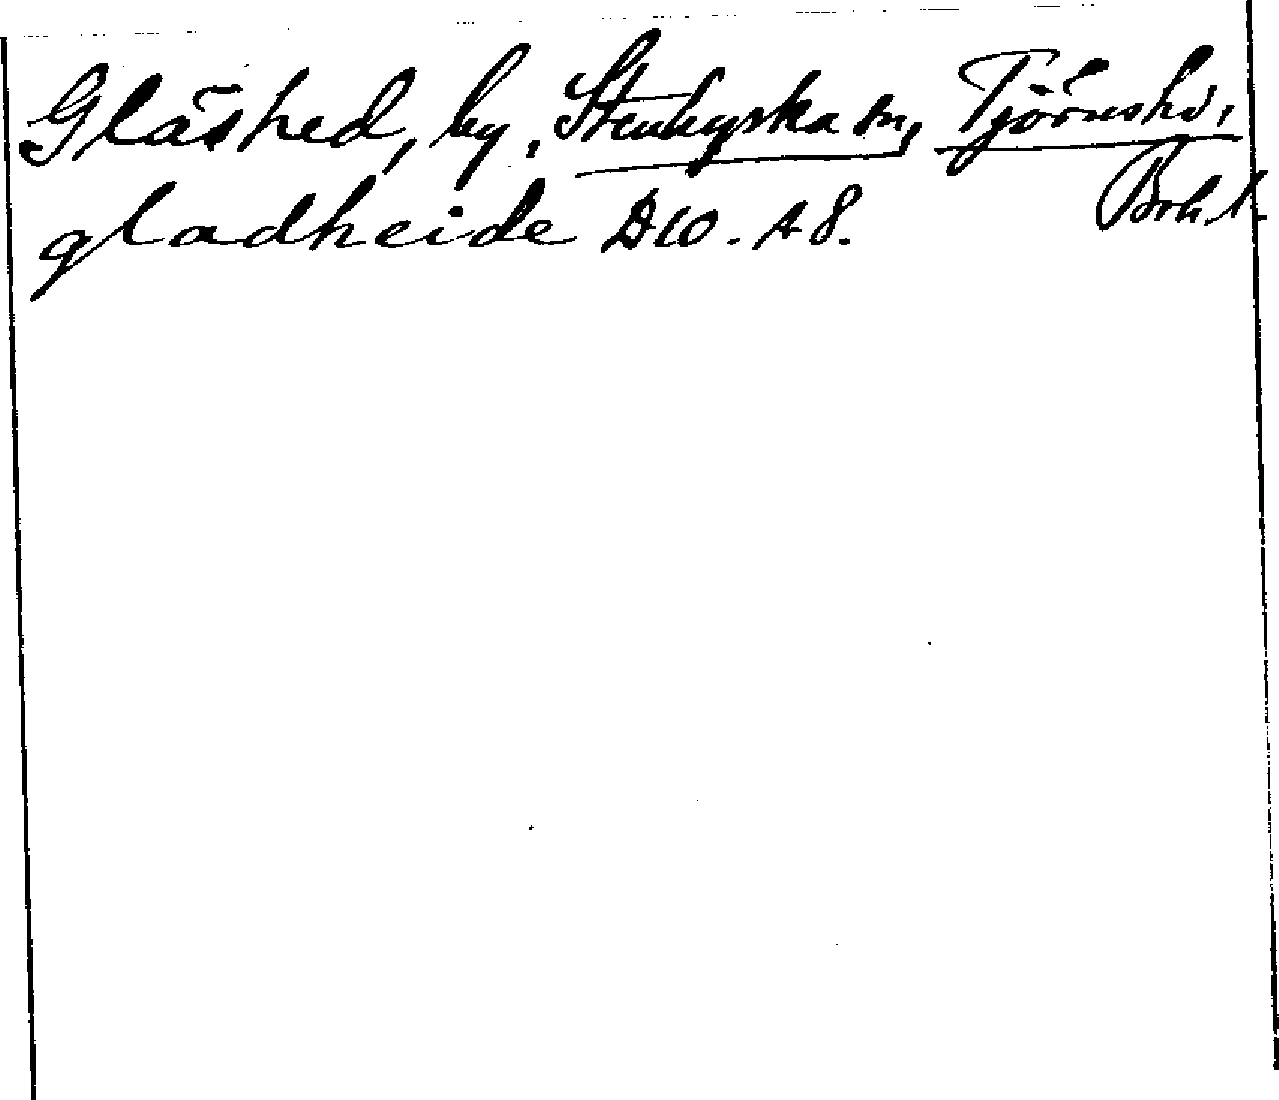 Gläshed, by, Stenkyrka sn, Tjörns hd,
Boh. l.
gladheide DIO. A8.